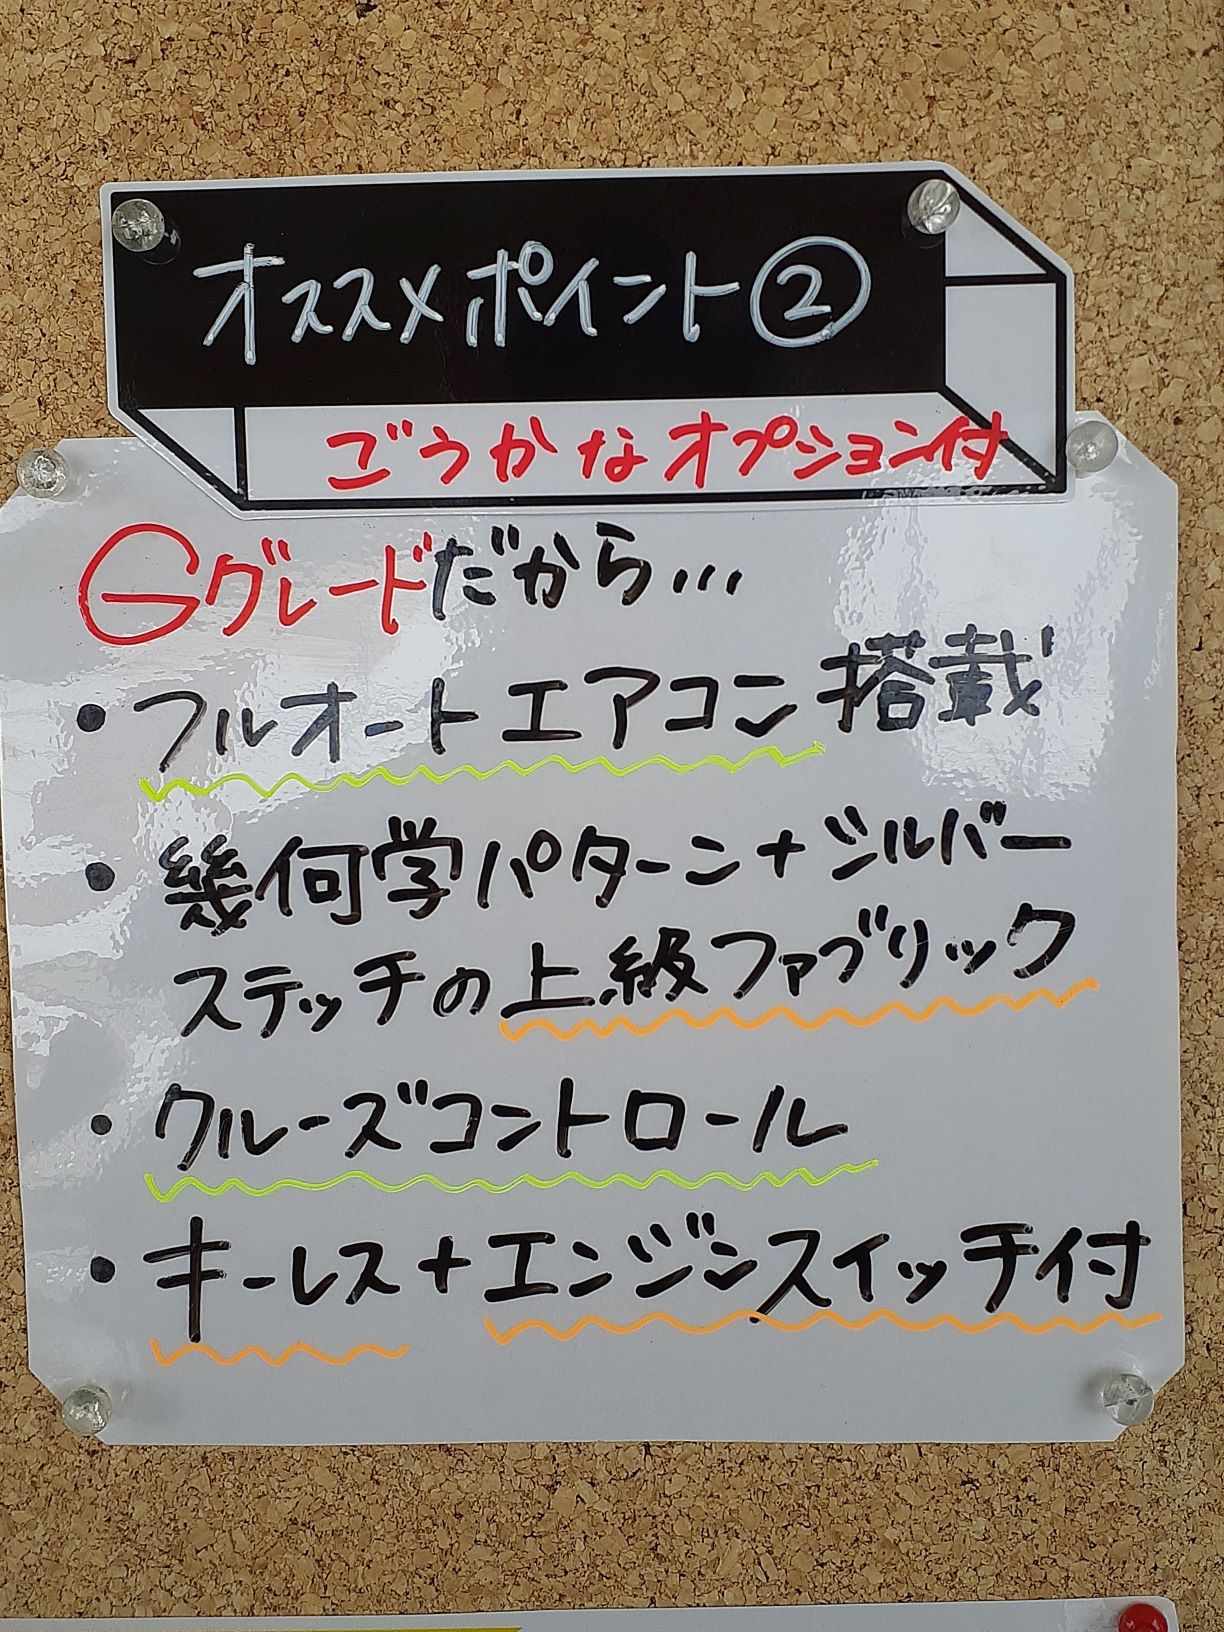 オススメポイント②
ごうかなオプション付
Gグレードだから...
・フルオートエアコン搭載
・幾何学パターン+シルバー
ステッチの上級ファブリック
・クルーズコントロール
・キーレス+エンジンスイッチ付